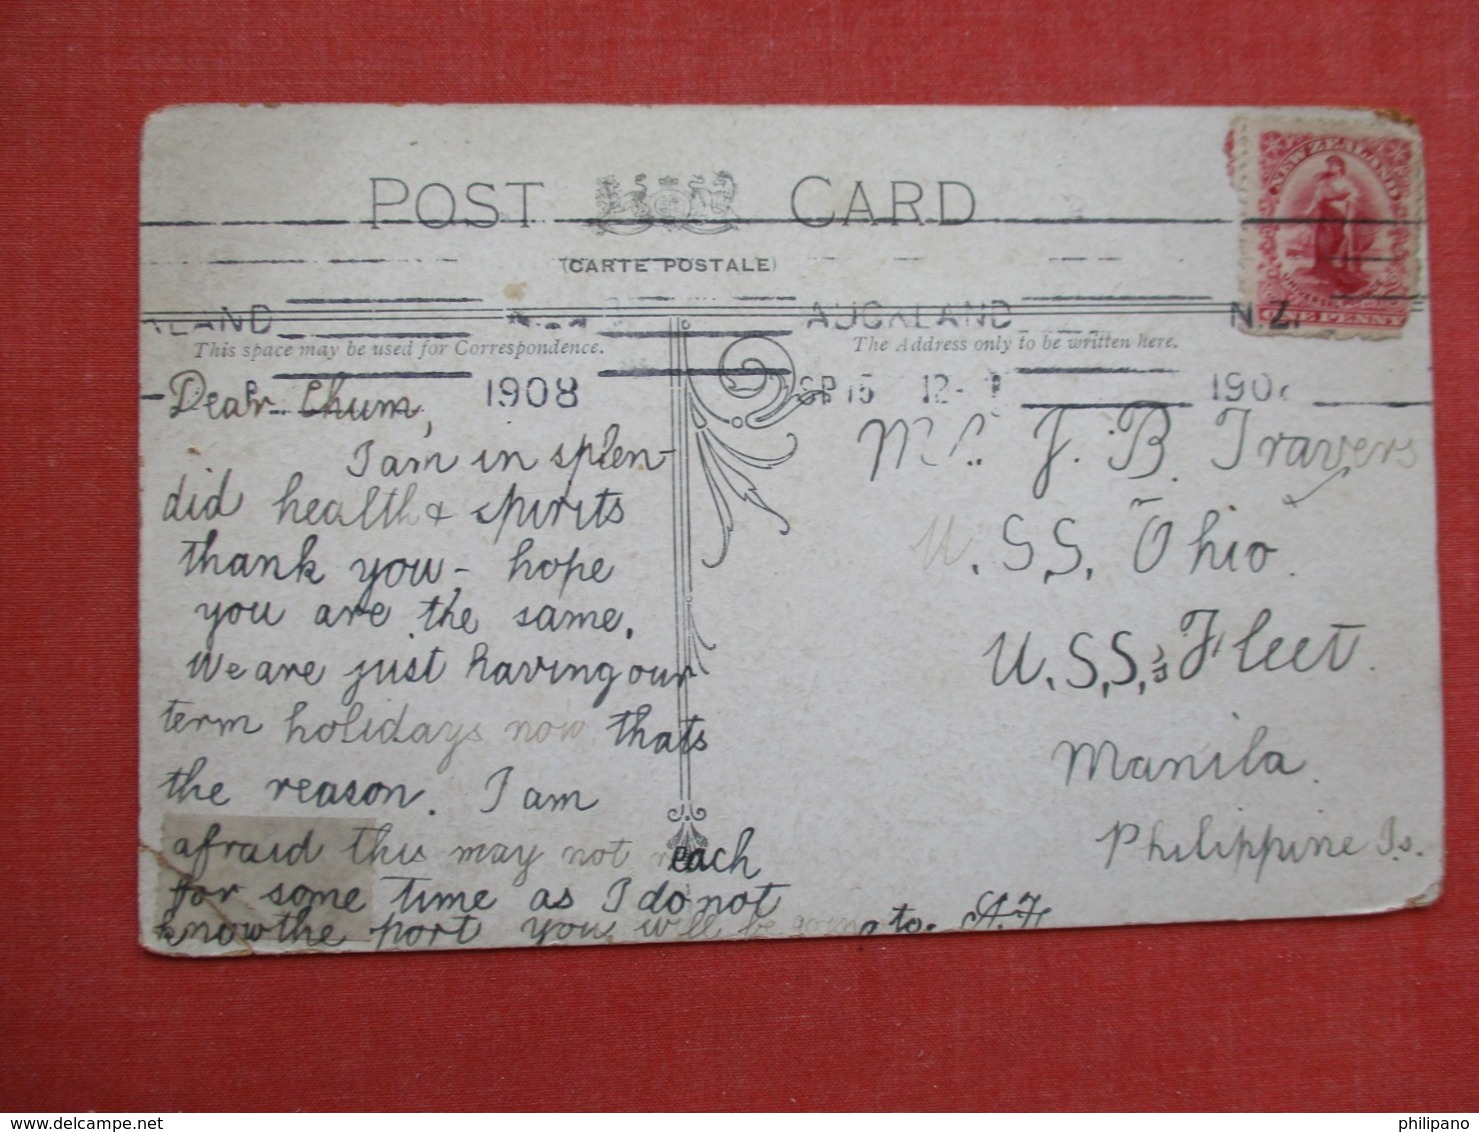 POST CARD
(CARTE POSTALE)
NEW ZEALAND
UNIVERSAL POSTAGE
ONE PENNY
KLAND
AUCKLAND
N.Z.
This space may be used for Correspondence.
The Address only to be written here.
1908
SP 15 12-
190
Dear Chum,
I am in splen-
did health & spirits
thank you - hope
you are the same.
We are just having our
term holidays now thats
the reason. I am
afraid this may not reach
for some time as I do not
know the port you will be going to. A.H
Mr. J. B. Travers
U.S.S. Ohio.
U.S.S.'s Fleet.
Manila.
Philippine Is.
philipano
delcampe.net